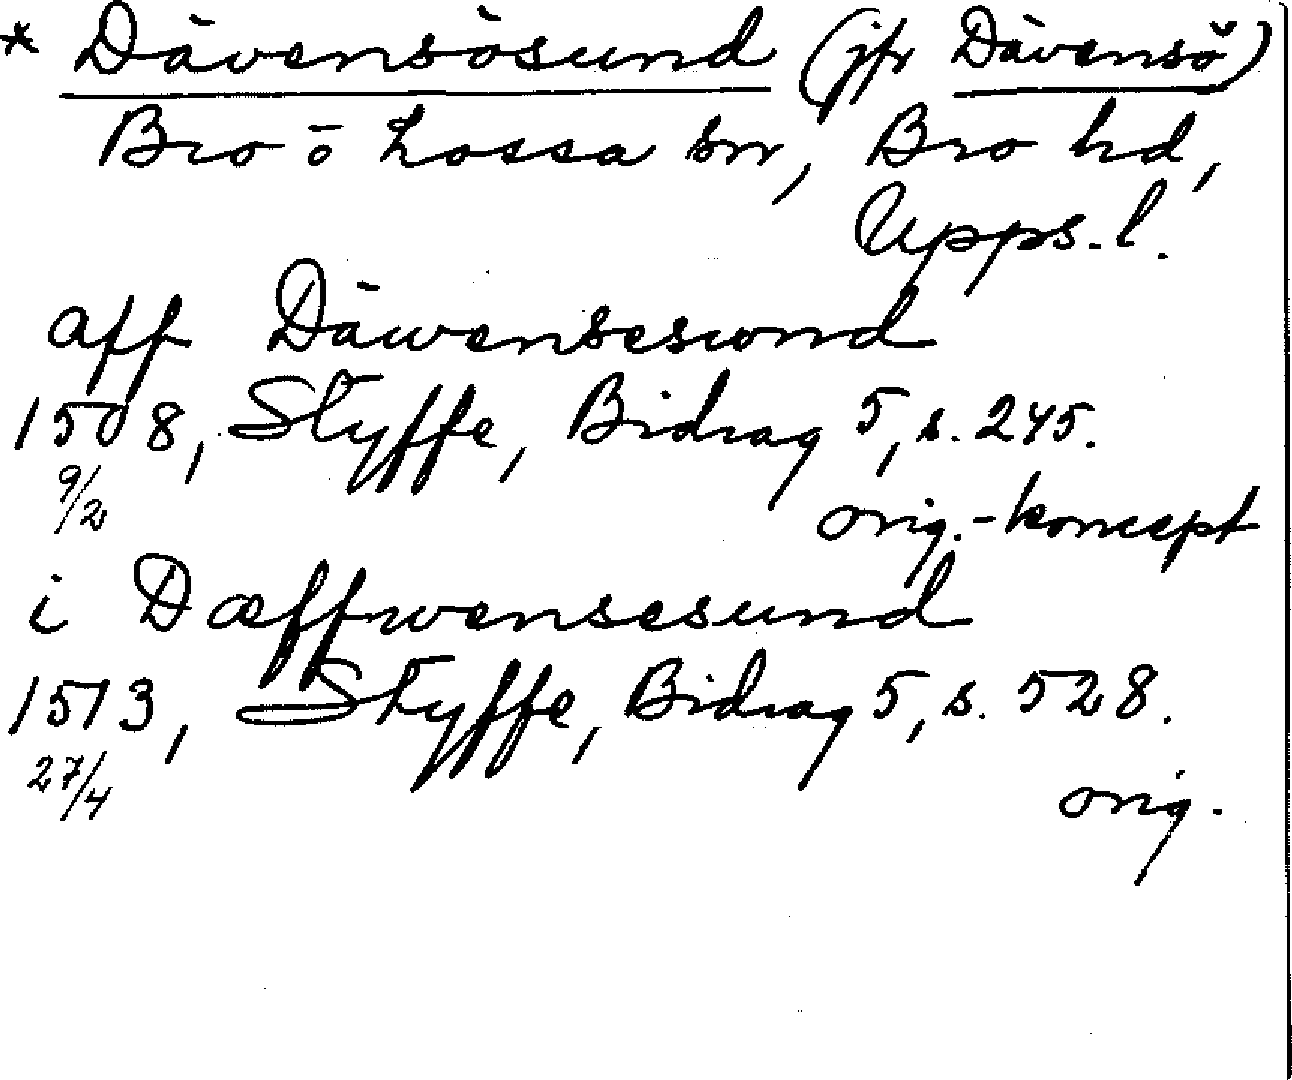 * Dävensösund (jfr Dävensö)
Bro o Lossa snr, Bro hd,
Upps. l.
aff Däwensesund
1508, Styffe, Bidrag 5, s. 245.
9/2
orig.-koncept
i Dæffwensesund
1513, Styffe, Bidrag 5, s. 528.
27/4
orig.